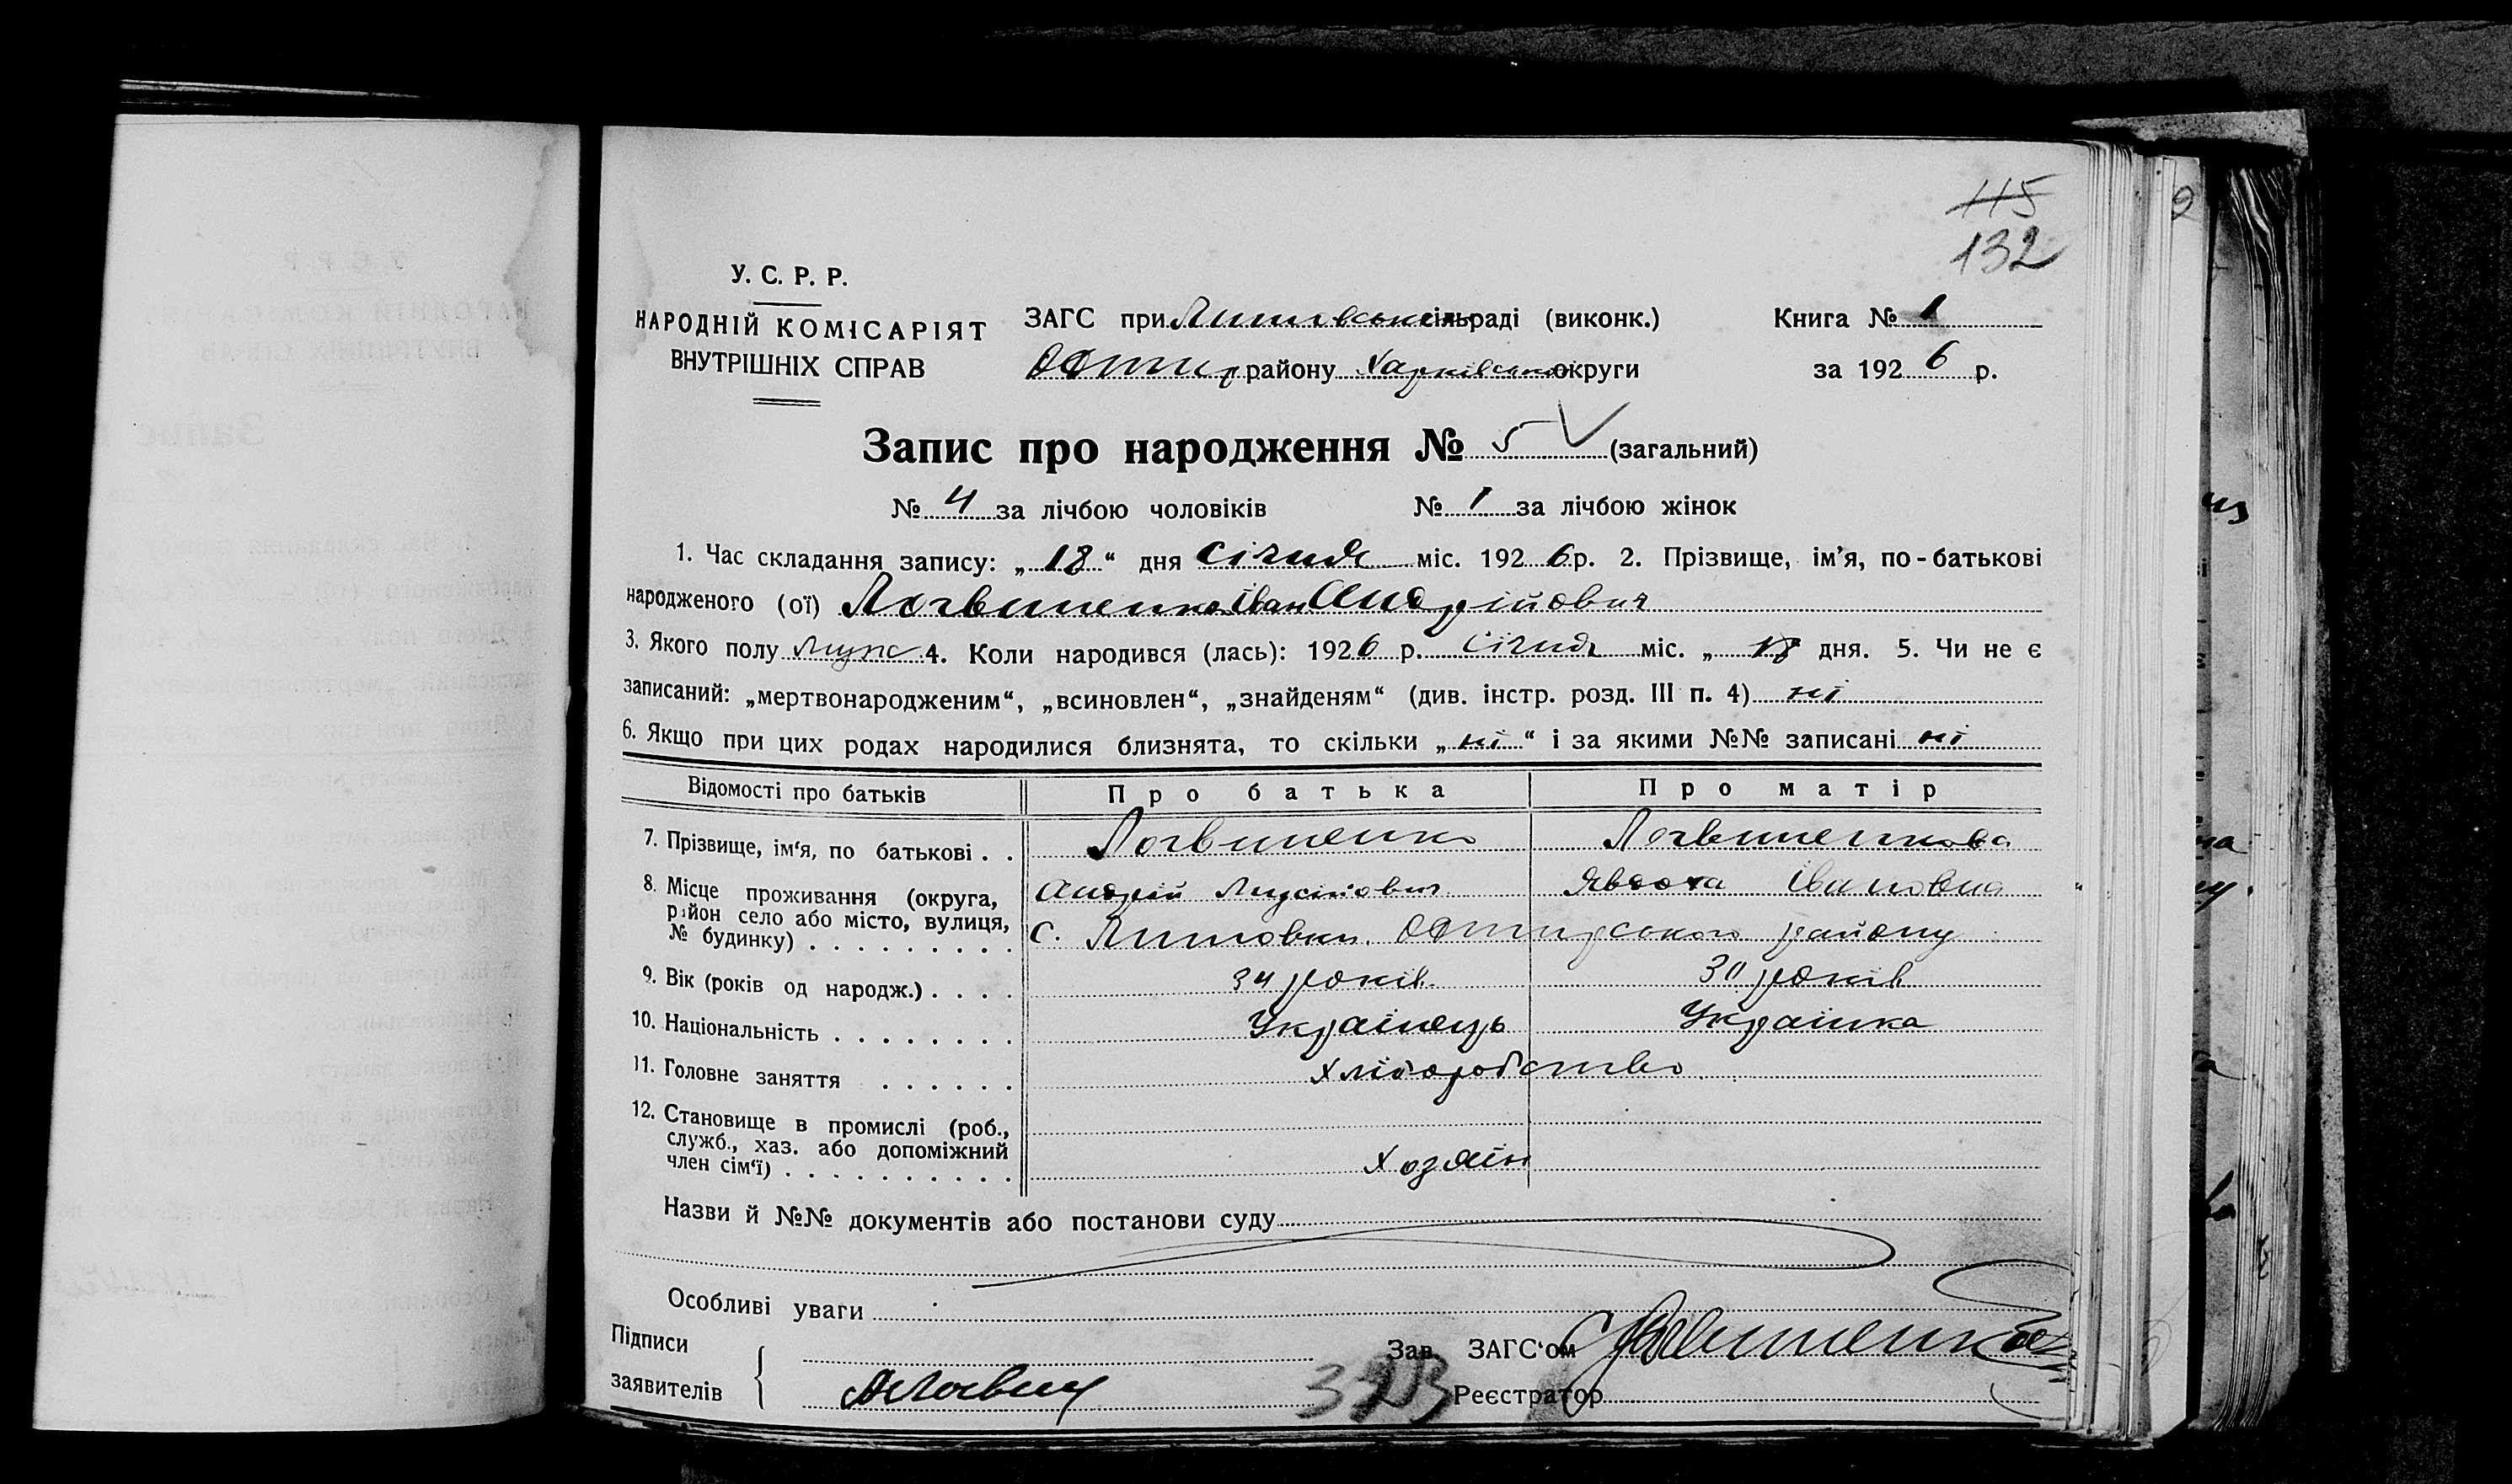 115
132
У. С. Р. Р.
НАРОДНІЙ КОМІСАРІЯТ
ВНУТРІШНІХ СПРАВ
ЗАГС при Липовській сільраді (виконк.)
району Харківської округи
Книга № 1
за 1926 р.
Запис про народження № 5 (загальний)
№ 4 за лічбою чоловіків № 1 за лічбою жінок
1. Час складання запису: „18“ дня Січня міс. 1926 р. 2. Прізвище, ім’я, по-батькові
народженого (ої) Логвиненко Іван Андрійович
3. Якого полу муж 4. Коли народився (лась): 1926 р. Січня міс. „ дня. 5. Чи не є
записаний: „мертвонародженим“, „всиновлен“, „знайденям“ (див. інстр. розд. III п. 4) ні
6. Якщо при цих родах народилися близнята, то скільки „ні“ і за якими №№ записані ні
Відомості про батьків Про батька Про матір
7. Прізвище, ім‘я, по батькові . . Логвиненко Логвиненкова
Андрій Явдоха Івановна
8. Місце проживання (округа,
район село або місто, вулиця,
№ будинку) . . . . . . . . . с. Липовки району
9. Вік (років од народж.) . . . . 34 років 30 років
10. Національність . . . . . . . . Українець Українка
11. Головне заняття . . . . . . Хліборобство
12. Становище в промислі (роб.,
служб., хаз. або допоміжний
член сім‘ї) . . . . . . . . . . Хозяїн
Назви й №№ документів або постанови суду
Особливі уваги
Підписи
заявителів
Зав. ЗАГС‘ом
Реєстратор